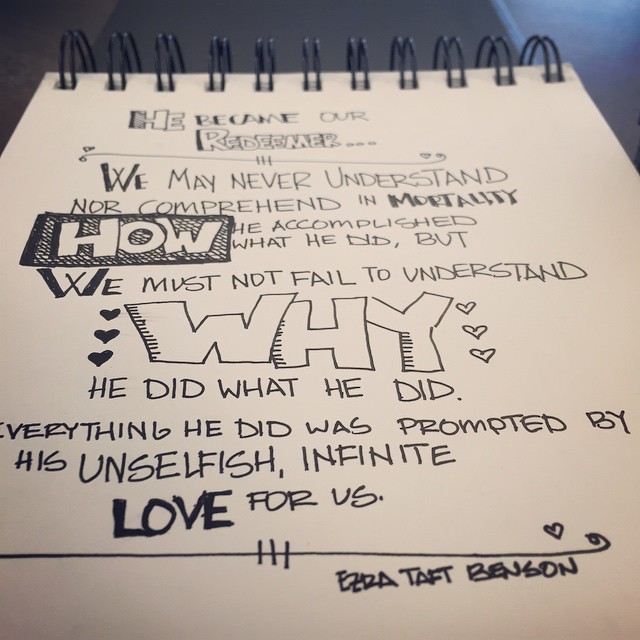 HE BECAME OUR
REDEEMER...
WE MAY NEVER UNDERSTAND
NOR COMPREHEND IN MORTALITY
HOW HE ACCOMPLISHED
WHAT HE DID, BUT
WE MUST NOT FAIL TO UNDERSTAND
WHY
HE DID WHAT HE DID.
EVERYTHING HE DID WAS PROMPTED BY
HIS UNSELFISH, INFINITE
LOVE FOR US.
EZRA TAFT BENSON